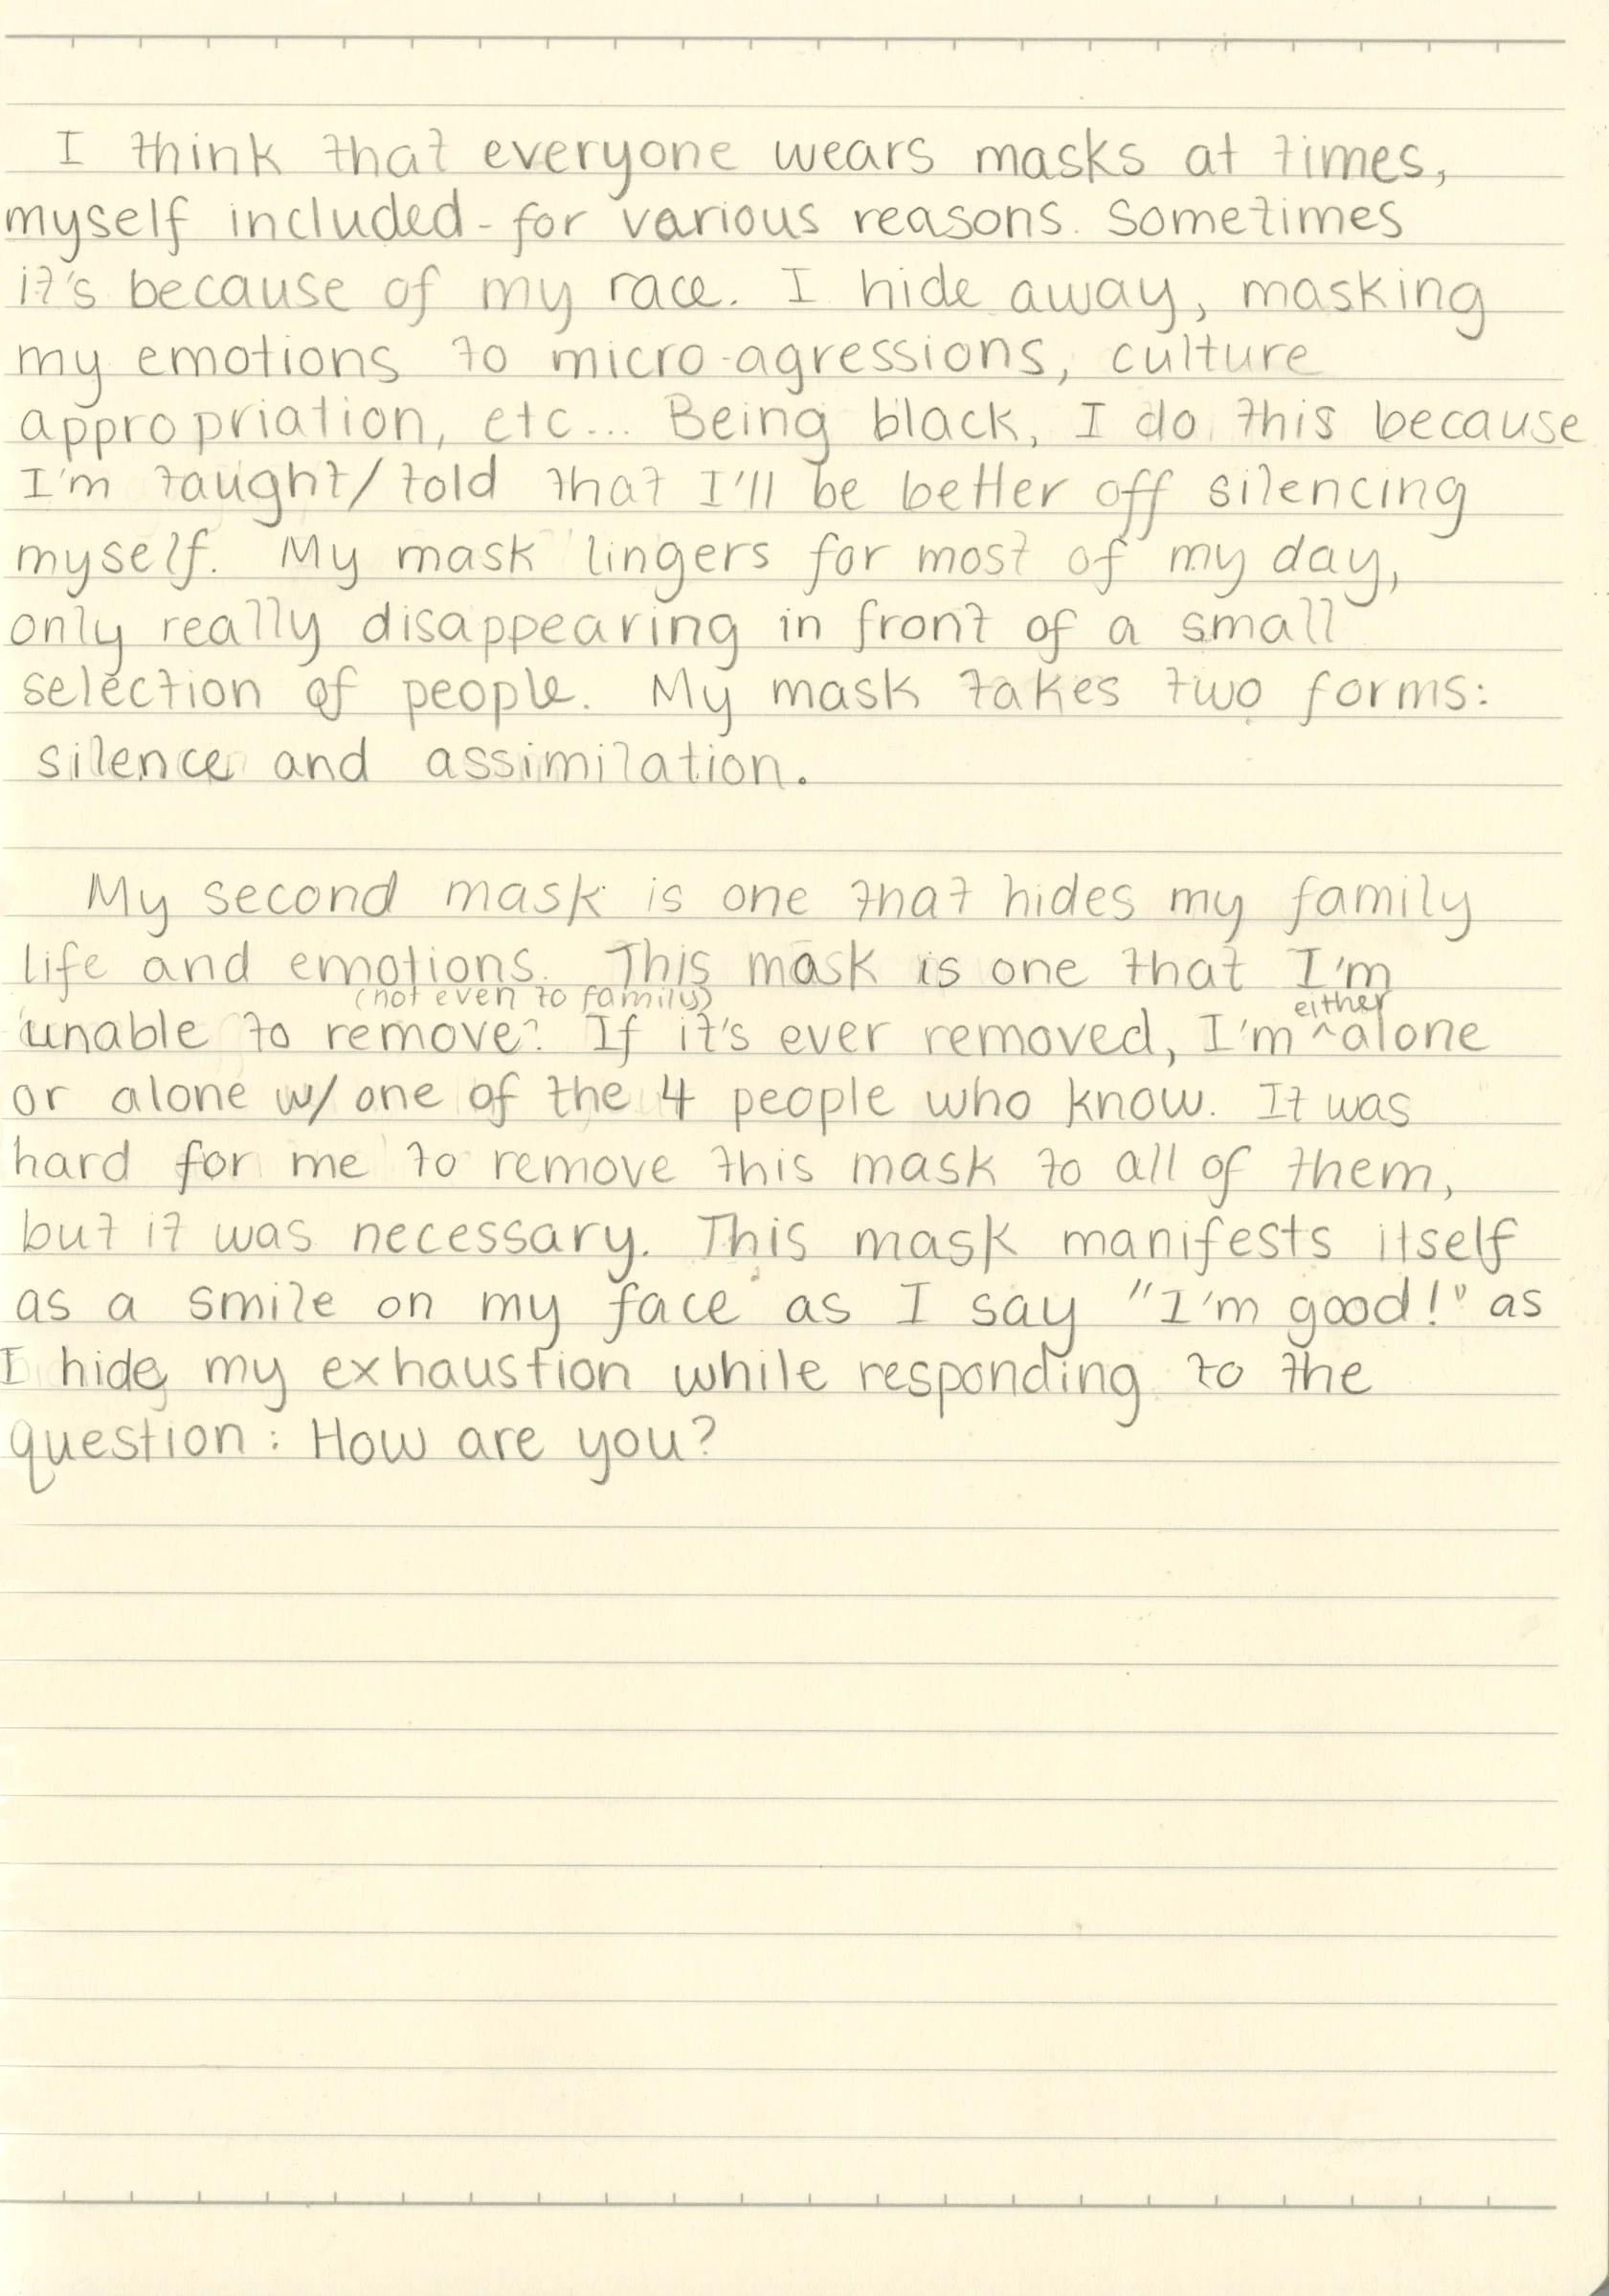 I think that everyone wears masks at times,
myself included - for various reasons. Sometimes
it's because of my race. I hide away, masking
my emotions to micro-agressions, culture
appropriation, etc... Being black, I do this because
I'm taught/told that I'll be better off silencing
myself. My mask lingers for most of my day,
only really disappearing in front of a small
selection of people. My mask takes two forms:
silence and assimilation.
My second mask is one that hides my family
life and emotions. This mask is one that I'm
(not even to family) either
unable to remove. If it's ever removed, I'm ^ alone
or alone w/ one of the 4 people who know. It was
hard for me to remove this mask to all of them,
but it was necessary. This mask manifests itself
as a smile on my face as I say "I'm good!" as
I hide my exhaustion while responding to the
question: How are you?